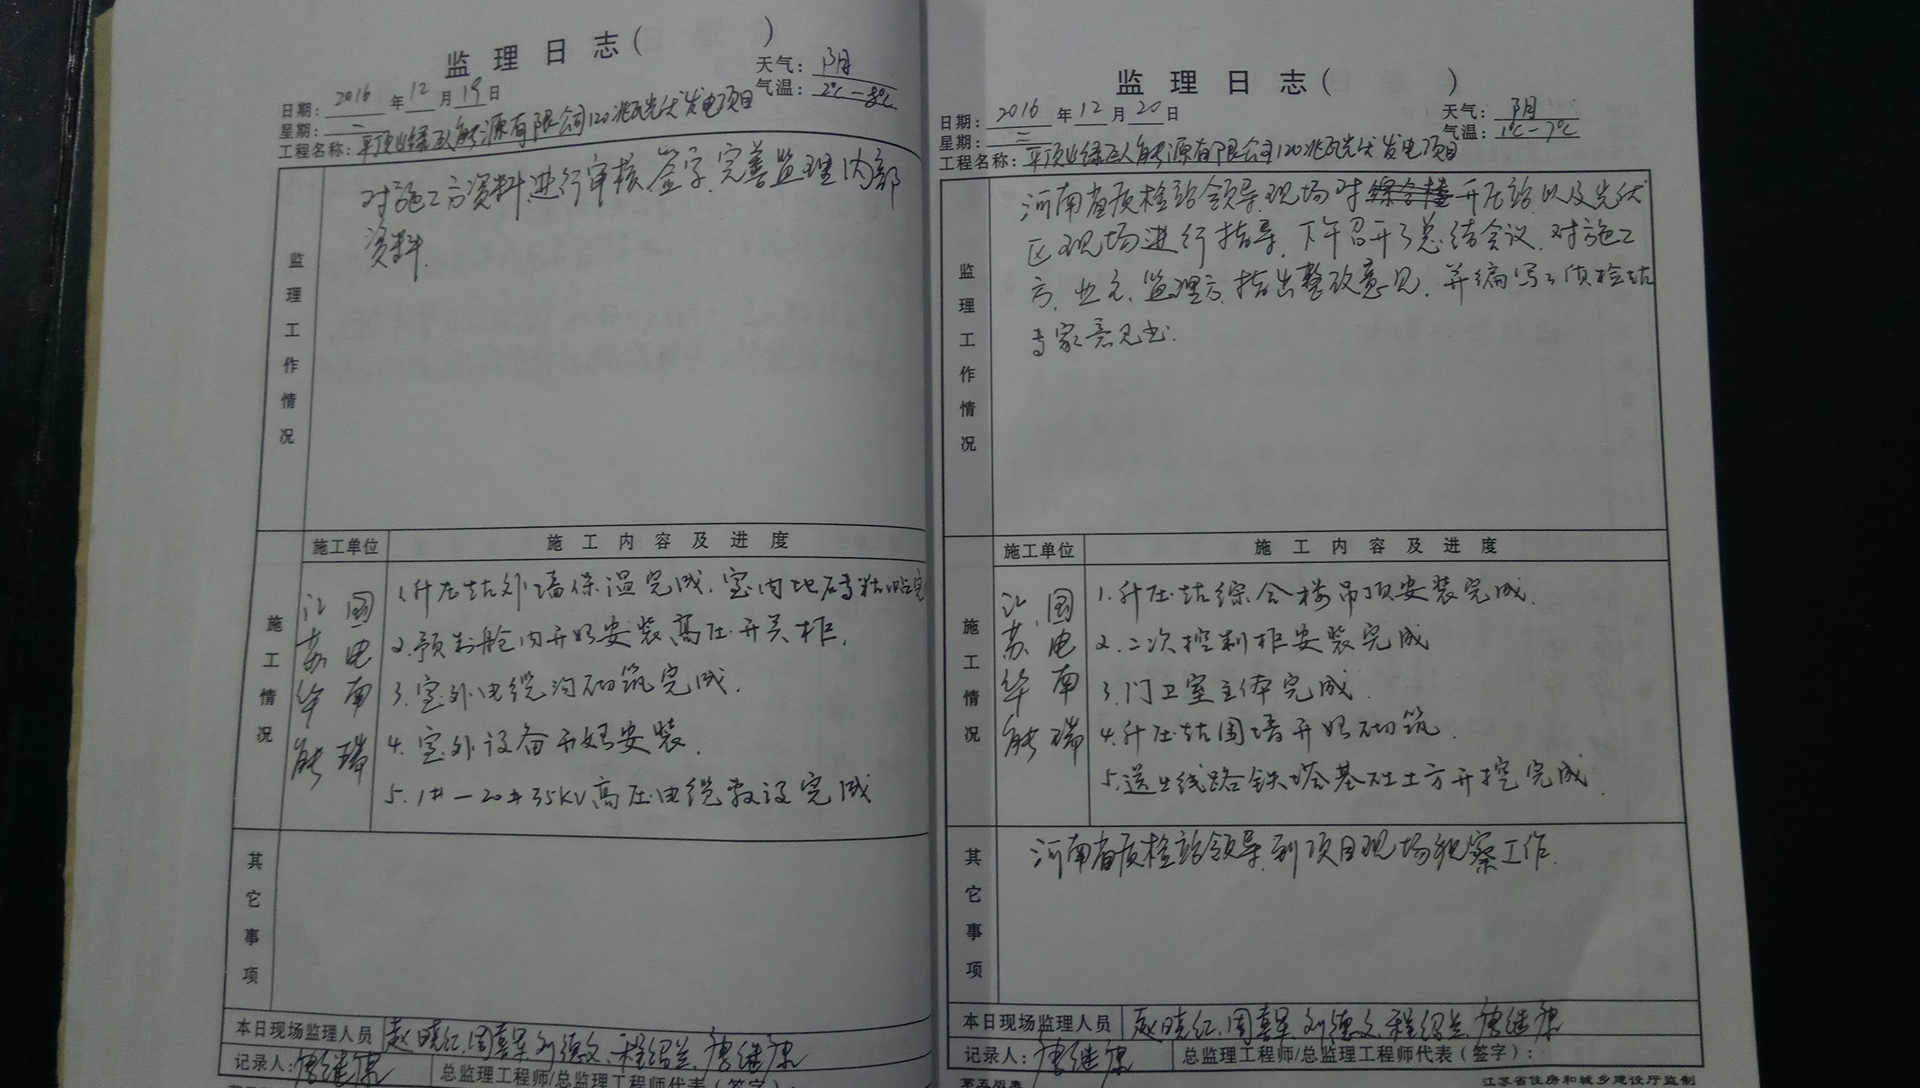 监理日志( )
日期: 2016 年 12 月 19 日
天气: 阴
星期: 二
气温: 2℃-8℃
工程名称: 平顶山绿巨人能源有限公司120兆瓦光伏发电项目
监理工作情况
对施工方资料进行审核签字,完善监理内部
资料.
施工单位 施工内容及进度
施工情况
江苏华能 国电南瑞
1.升压站外墙保温完成.室内地砖粘贴完
2.预制舱内开始安装高压开关柜.
3.室外电缆沟砌筑完成.
4.室外设备开始安装.
5.1#-20#35KV高压电缆敷设完成
其它事项
本日现场监理人员 赵晓红.周喜军.刘德文.程绍兰.唐继康
记录人: 唐继康 总监理工程师/总监理工程师代表(签字):
监理日志( )
日期: 2016 年 12 月 20 日
天气: 阴
星期: 二
气温: 1℃-7℃
工程名称: 平顶山绿巨人能源有限公司120兆瓦光伏发电项目
监理工作情况
河南省质检站领导现场对综合楼升压站以及光伏
区现场进行指导.下午召开了总结会议.对施工
方.业主.监理方.指出整改意见.并编写了质检站
专家意见书.
施工单位 施工内容及进度
施工情况
江苏华能 国电南瑞
1.升压站综合楼吊顶安装完成.
2.二次控制柜安装完成
3.门卫室主体完成.
4.升压站围墙开始砌筑.
5.送出线路铁塔基础土方开挖完成.
其它事项
河南省质检站领导到项目现场视察工作.
本日现场监理人员 赵晓红.周喜军.刘德文.程绍兰.唐继康
记录人: 唐继康 总监理工程师/总监理工程师代表(签字):
第五版表 江苏省住房和城乡建设厅监制